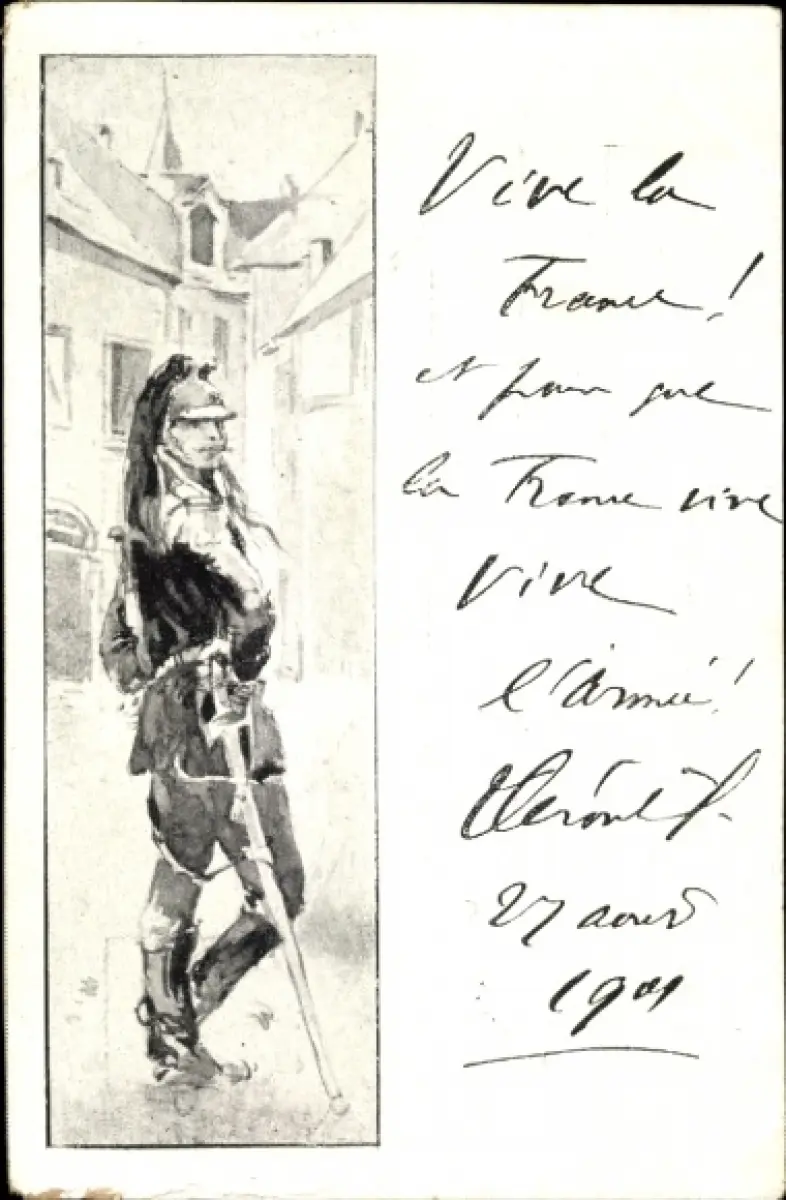 Vive la
France!
et pour que
la France vive
Vive
l'Armée!
27 août
1901